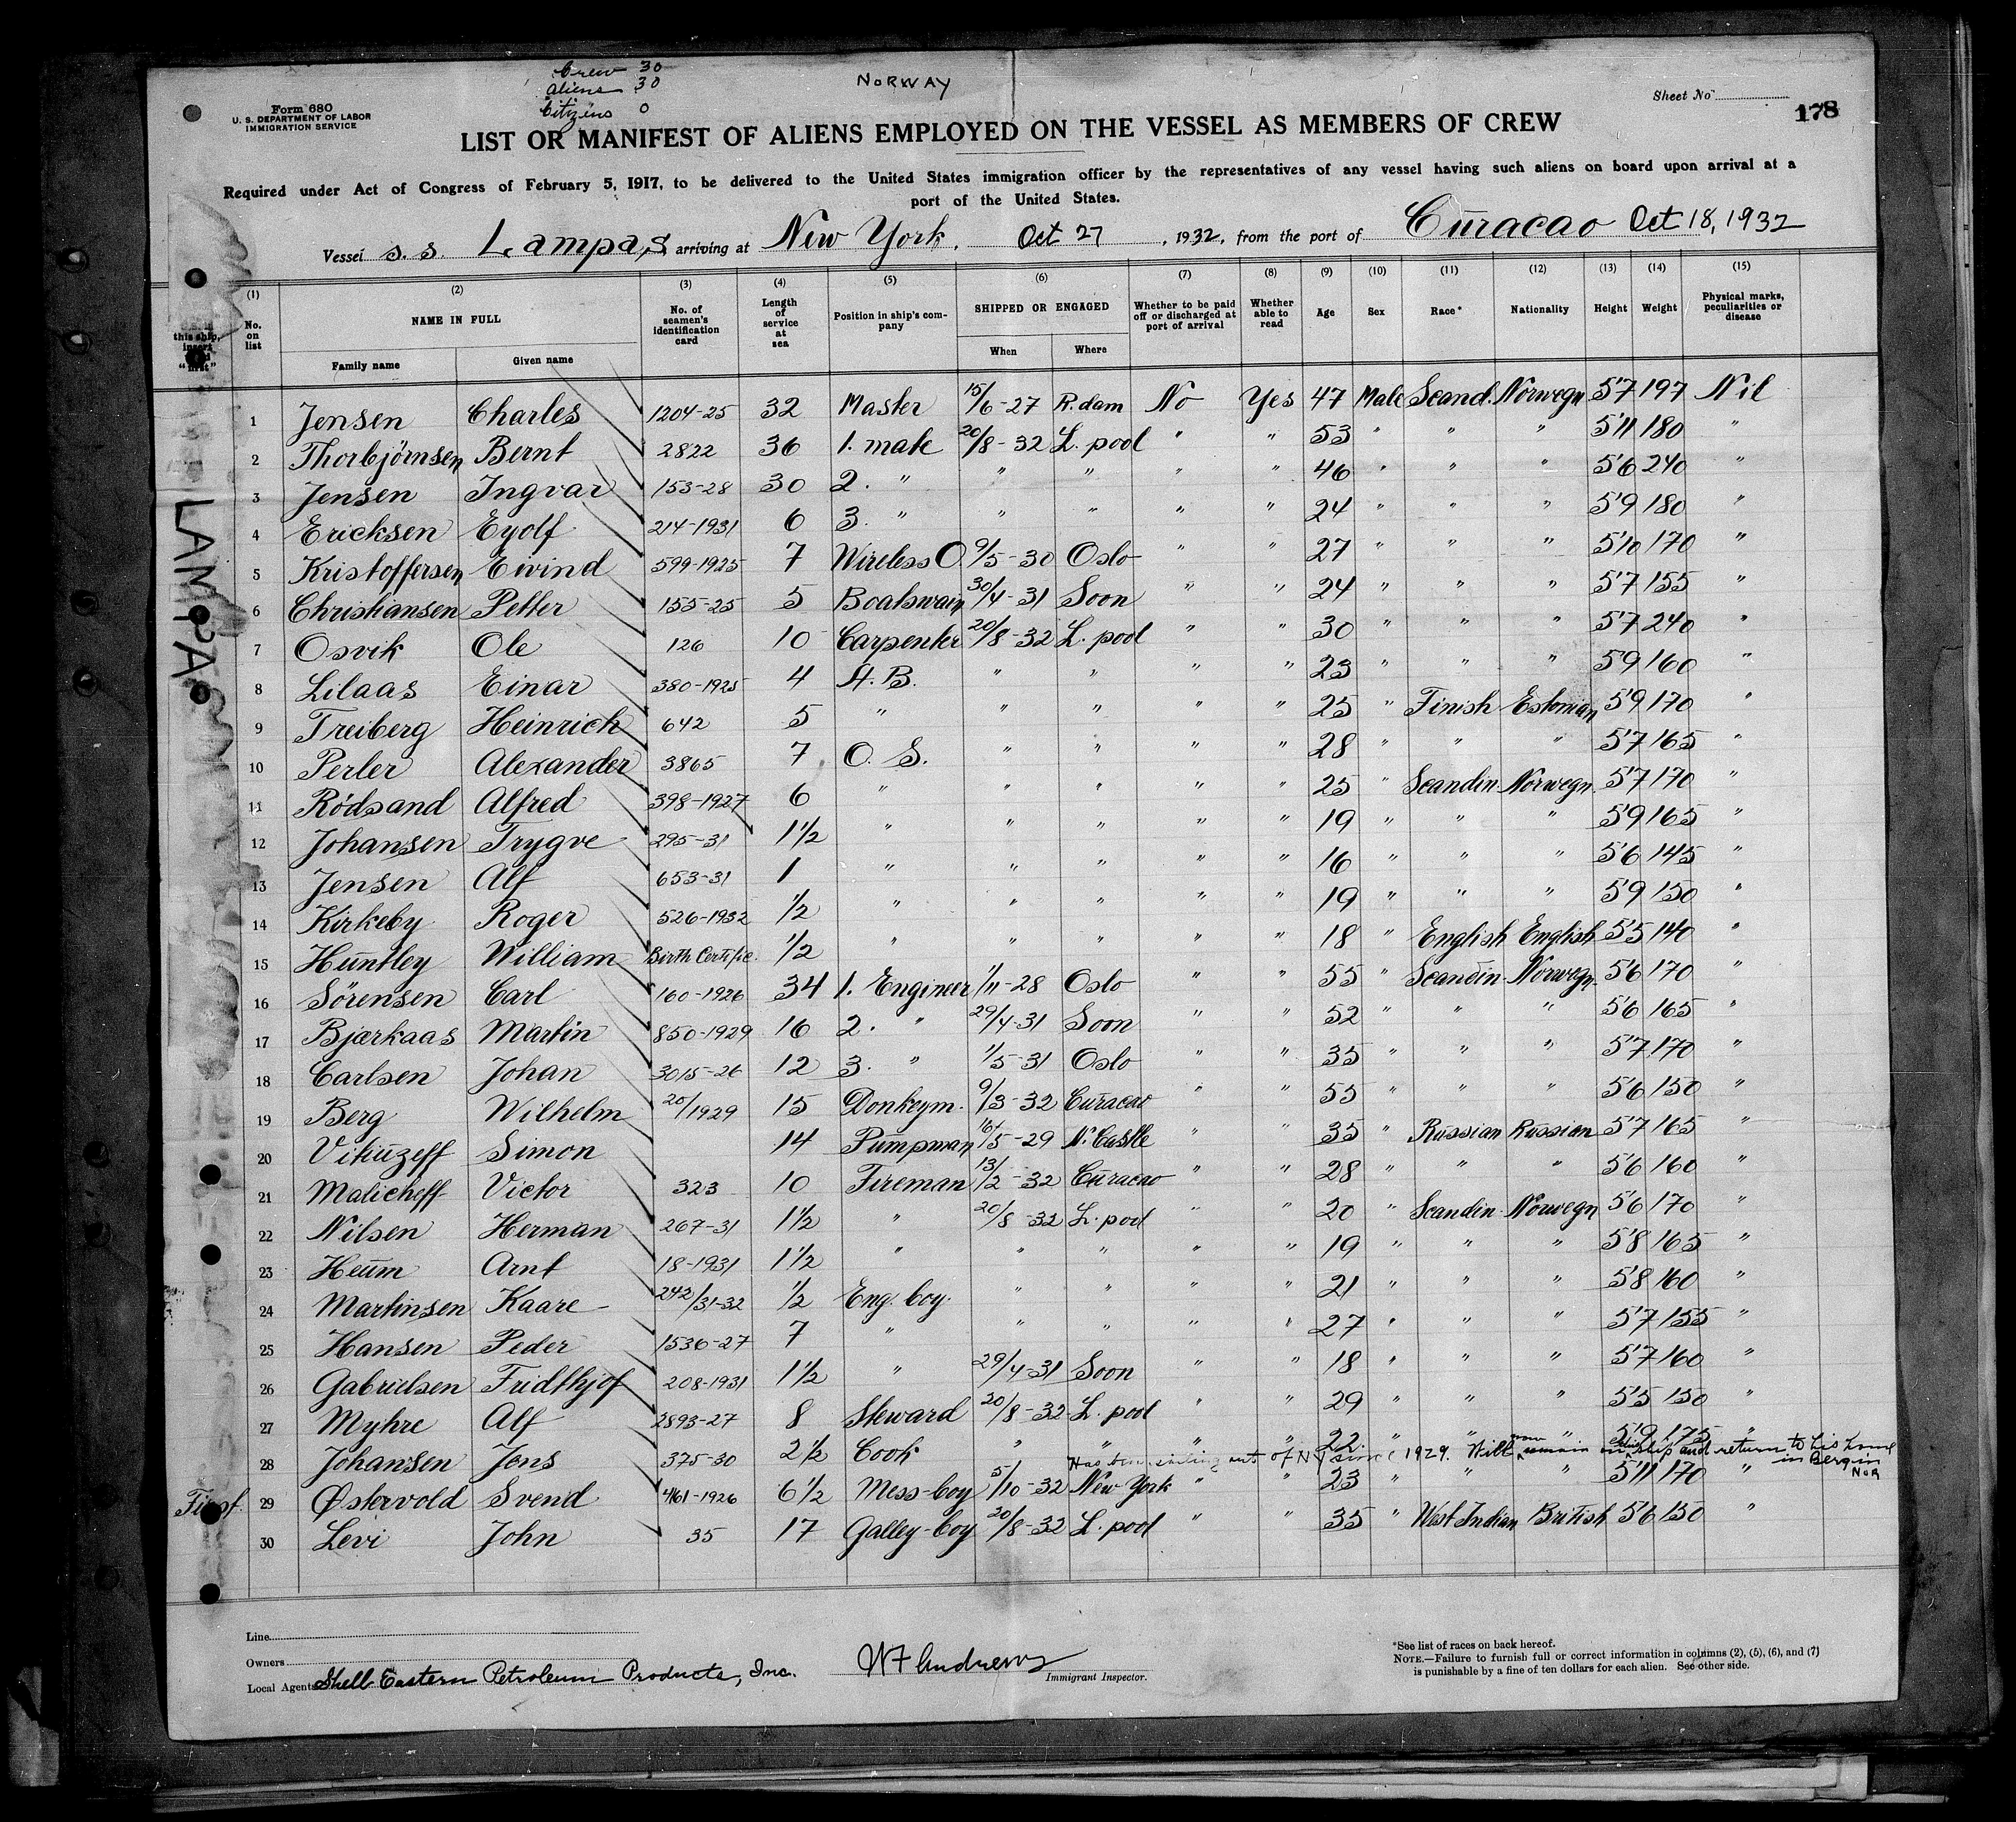 Crew 30
aliens 30
Citizens 0
NORWAY
Sheet No
178
Form 680
U. S. DEPARTMENT OF LABOR
IMMIGRATION SERVICE
LIST OR MANIFEST OF ALIENS EMPLOYED ON THE VESSEL AS MEMBERS OF CREW
Required under Act of Congress of February 5, 1917, to be delivered to the United States immigration officer by the representatives of any vessel having such aliens on board upon arrival at a
port of the United States.
Vessel s.s. Lampas, arriving at New York, Oct 27, 1932, from the port of Curacao Oct 18, 1932
(1) (2) (3) (4) (5) (6) (7) (8) (9) (10) (11) (12) (13) (14) (15)
this ship, insert "first" No. on list NAME IN FULL Family name Given name No. of seamen's identification card Length of service at sea Position in ship's company SHIPPED OR ENGAGED When Where Whether to be paid off or discharged at port of arrival Whether able to read Age Sex Race* Nationality Height Weight Physical marks, peculiarities or disease
1 Jensen Charles 1204-25 32 Master 15/6-27 R.dam No Yes 47 Male Scand. Norwegn 5'7 197 Nil
2 Thorbjörnsen Bernt 2822 36 1. mate 20/8-32 L. pool " " 53 " " " 5'11 180 "
3 Jensen Ingvar 153-28 30 2. " " " " " 46 " " " 5'6 240 "
4 Ericksen Eyolf 214-1931 6 3. " " " " " 24 " " " 5'9 180 "
5 Kristoffersen Eivind 599-1925 7 Wireless O. 9/5-30 Oslo " " 27 " " " 5'10 170 "
6 Christiansen Petter 155-25 5 Boatswain 30/4-31 Soon " " 24 " " " 5'7 155 "
7 Osvik Ole 126 10 Carpenter 20/8-32 L. pool " " 30 " " " 5'7 240 "
8 Lilaas Einar 380-1925 4 A. B. " " " " 23 " " " 5'9 160 "
9 Treiberg Heinrich 642 5 " " " " " 25 " Finish Estonian 5'9 170 "
10 Perler Alexander 3865 7 O. S. " " " " 28 " " " 5'7 165 "
11 Rödsand Alfred 398-1927 6 " " " " " 25 " Scandin Norwegn. 5'7 170 "
12 Johansen Trygve 295-31 1 1/2 " " " " " 19 " " " 5'9 165 "
13 Jensen Alf 653-31 1 " " " " " 16 " " " 5'6 145 "
14 Kirkeby Roger 526-1932 1/2 " " " " " 19 " " " 5'9 150 "
15 Huntley William Birth Certific. 1/2 " " " " " 18 " English English 5'5 140 "
16 Sörensen Carl 160-1926 34 1. Engineer 1/11-28 Oslo " " 55 " Scandin Norwegn. 5'6 170 "
17 Bjærkaas Martin 850-1929 16 2. " 29/4-31 Soon " " 52 " " " 5'6 165 "
18 Carlsen Johan 3015-26 12 3. " 1/5-31 Oslo " " 35 " " " 5'7 170 "
19 Berg Wilhelm 20/1929 15 Donkeym. 9/3-32 Curacao " " 55 " " " 5'6 150 "
20 Vikuzeff Simon 14 Pumpman 16/5-29 N. Castle " " 35 " Russian Russian 5'7 165 "
21 Malicheff Victor 323 10 Fireman 13/2-32 Curacao " " 28 " " " 5'6 160 "
22 Nilsen Herman 267-31 1 1/2 " 20/8-32 L. pool " " 20 " Scandin Norwegn 5'6 170 "
23 Heum Arnt 18-1931 1 1/2 " " " " " 19 " " " 5'8 165 "
24 Martinsen Kaare 242/31-32 1/2 Eng. boy. " " " " 21 " " " 5'8 160 "
25 Hansen Peder 1536-27 7 " " " " " 27 " " " 5'7 155 "
26 Gabrielsen Fridthjof 208-1931 1 1/2 " 29/4-31 Soon " " 18 " " " 5'7 160 "
27 Myhre Alf 2893-27 8 Steward 20/8-32 L. pool " " 29 " " " 5'5 150 "
28 Johansen Jens 375-30 2 1/2 Cook " " " " 22 " " " 5'9 175 "
Has been sailing out of N Y since 1929. Will now remain on this ship and return to his home in Bergen NOR
First 29 Østervold Svend 4161-1926 6 1/2 Mess-boy 5/10-32 New York " " 23 " " " 5'11 170 "
30 Levi John 35 17 Galley-boy 20/8-32 L. pool " " 35 " West Indian British 5'6 150 "
LAMPAS
Line
Owners
Local Agents Shell Eastern Petroleum Products, Inc.
WF Andrews
Immigrant Inspector.
*See list of races on back hereof.
NOTE.—Failure to furnish full or correct information in columns (2), (5), (6), and (7)
is punishable by a fine of ten dollars for each alien. See other side.